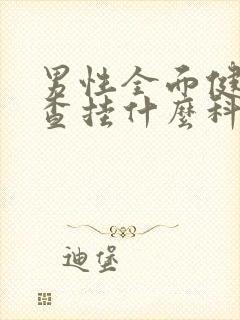 男性全面健
查挂什麼科
迪堡